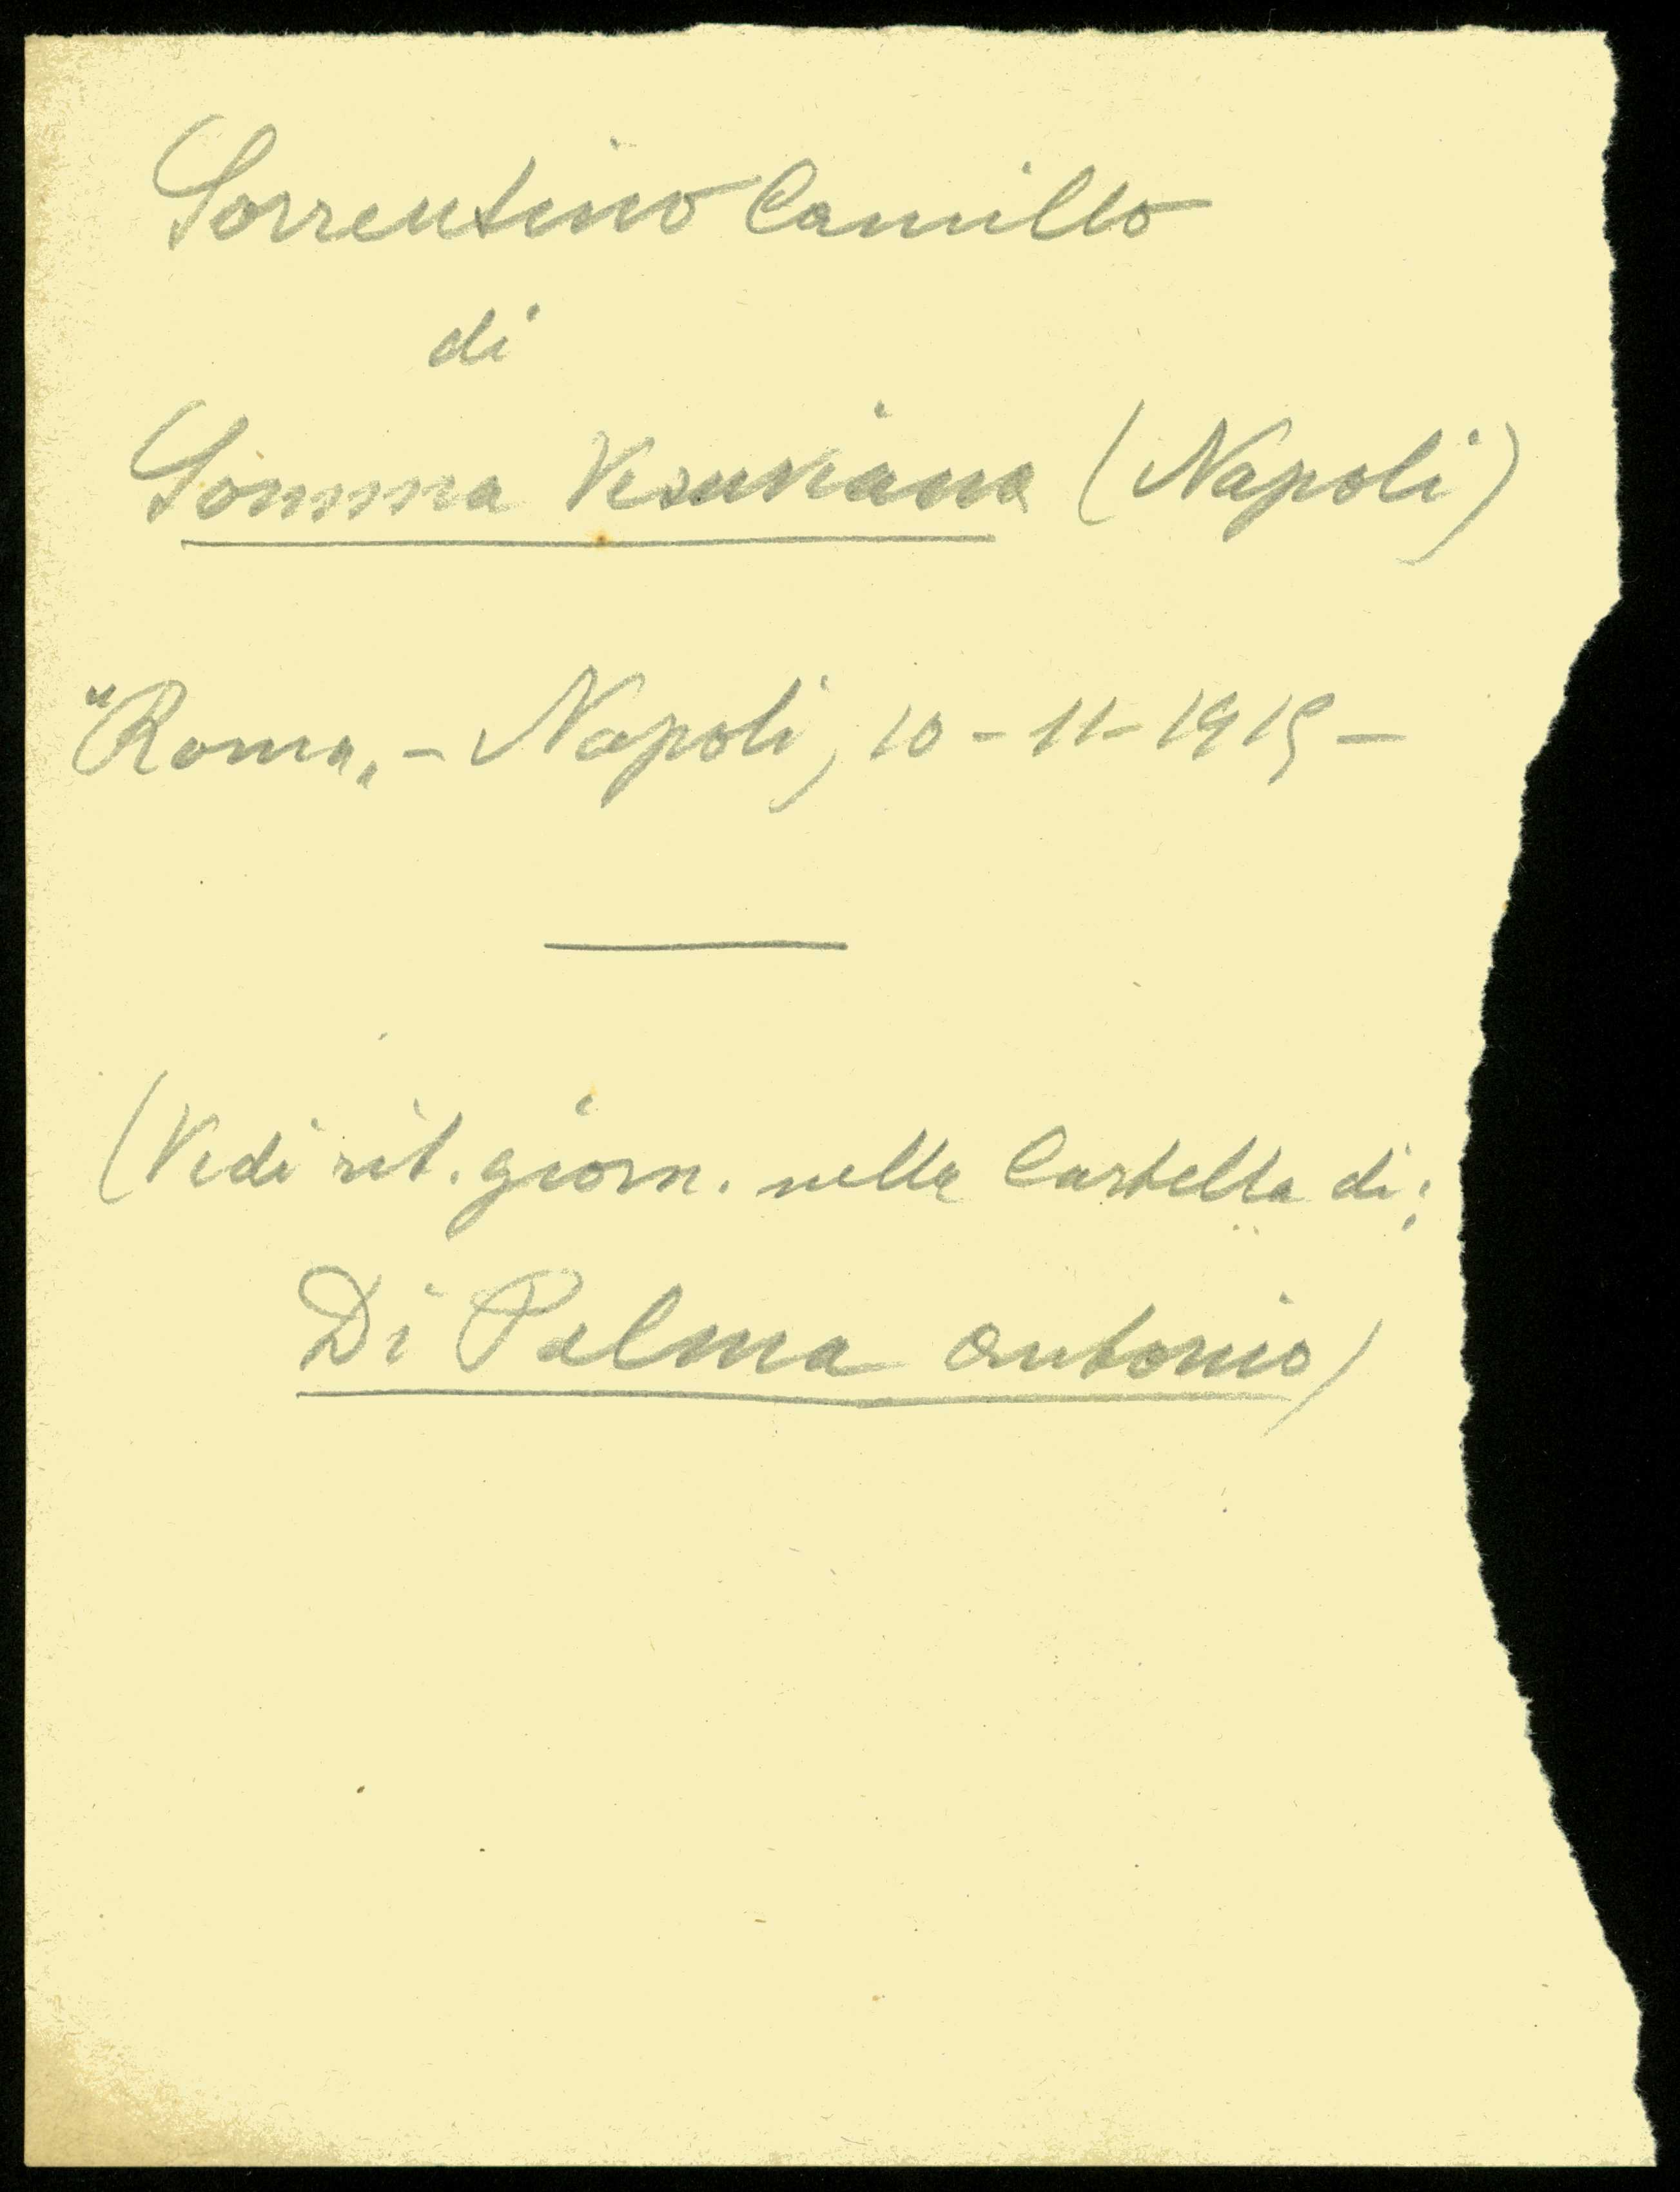 Sorrentino Camillo
di
Somma Vesuviana (Napoli)
"Roma„ - Napoli, 10-11-1919 -
(Vedi rit. giorn. nella Cartella di:
Di Palma Antonio)